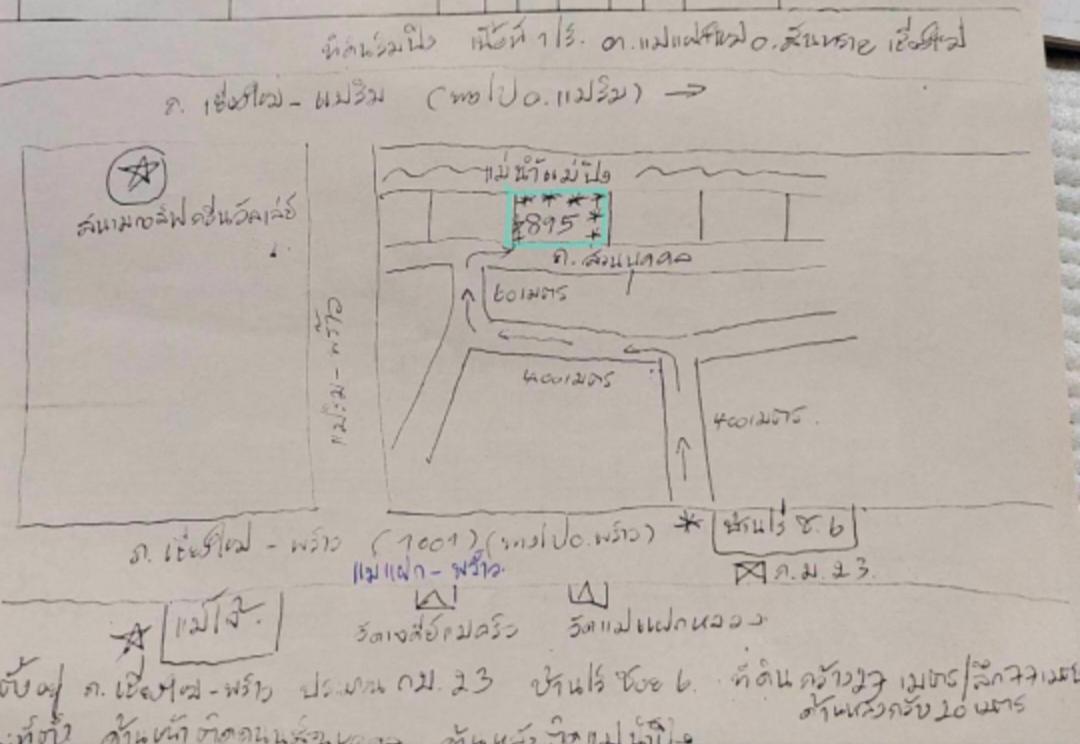 ที่ดินริมปิง เนื้อที่ 1 ไร่. ต.แม่แฝกใหม่ อ.สันทราย เชียงใหม่
ถ. เชียงใหม่ - แม่ริม (ทางไป อ.แม่ริม) →
แม่น้ำแม่ปิง
สนามกอล์ฟกรีนวัลเล่ย์
895
ถ.ส่วนบุคคล
60 เมตร
แม่ริม - พร้าว
400 เมตร
400 เมตร.
ถ. เชียงใหม่ - พร้าว (1001) (ทางไป อ.พร้าว) * บ้านไร่ ซ. 6
แม่แฝก - พร้าว
ก.ม. 23.
แม่โจ้.
วัดเจดีย์แม่ครัว วัดแม่แฝกหลวง
ตั้งอยู่ ถ.เชียงใหม่-พร้าว ประมาณ กม. 23 บ้านไร่ ซอย 6. ที่ดิน กว้าง 27 เมตร/ลึก 77 เมตร
ด้านหลังกว้าง 20 เมตร
ที่ตั้ง ด้านหน้าติดถนนส่วนบุคคล ด้านหลังติดแม่น้ำปิง